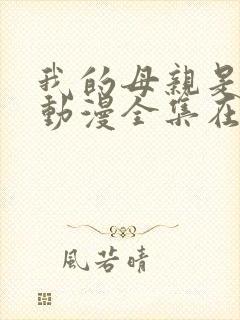 我的母親是
動漫全集在
風若晴